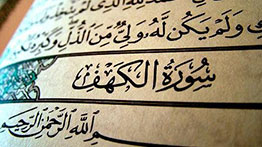 الَّذِي لَمْ
وَلَمْ يَكُن لَّهُ وَلِيٌّ مِّنَ الذُّلِّ وَكَبِّرْهُ
سُورَةُ الكَهْفِ
اللَّهِ الرَّحْمَٰنِ الرَّحِيمِ